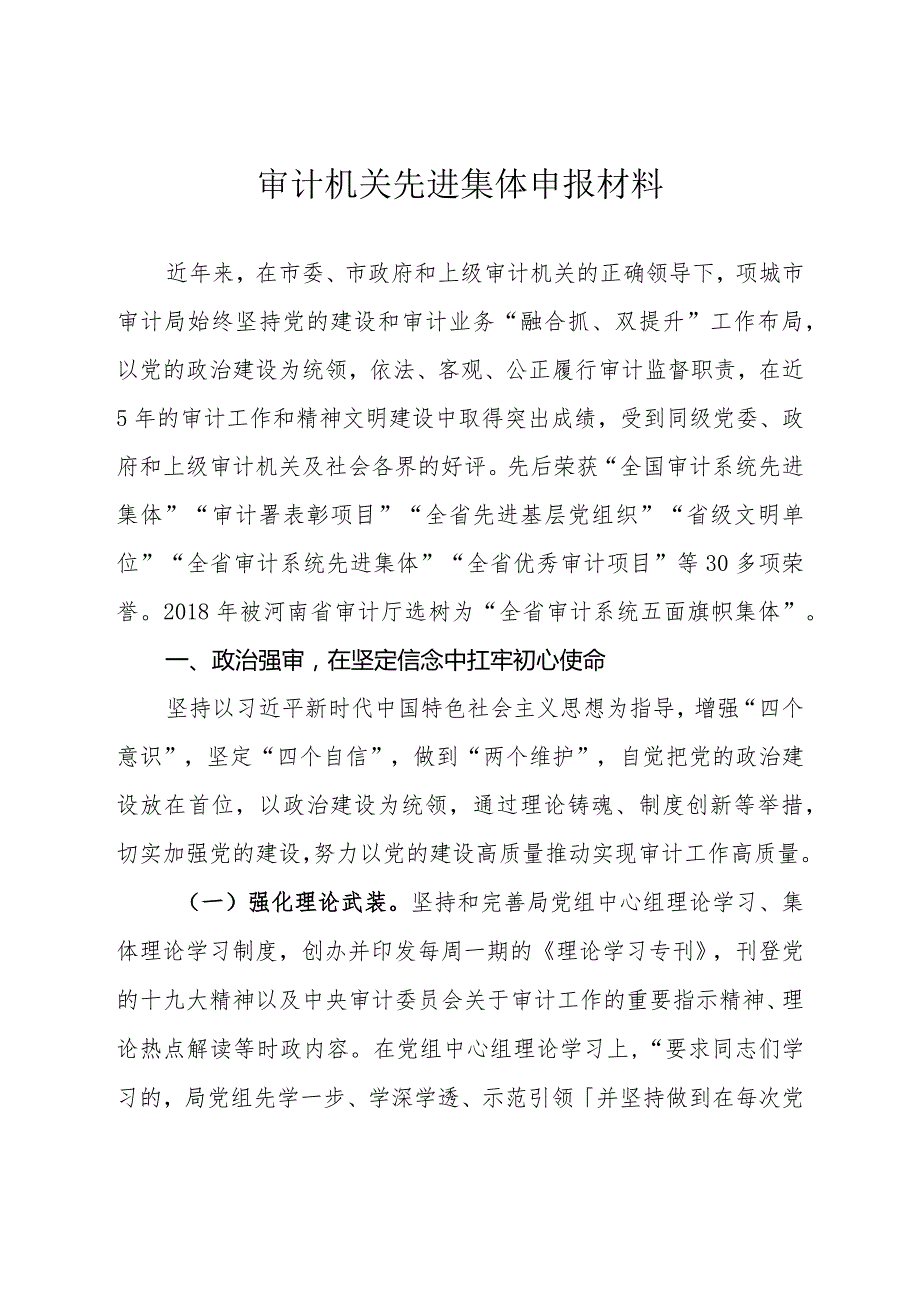 审计机关先进集体申报材料
近年来，在市委、市政府和上级审计机关的正确领导下，项城市
审计局始终坚持党的建设和审计业务“融合抓、双提升”工作布局，
以党的政治建设为统领，依法、客观、公正履行审计监督职责，在近
5 年的审计工作和精神文明建设中取得突出成绩，受到同级党委、政
府和上级审计机关及社会各界的好评。先后荣获“全国审计系统先进
集体”“审计署表彰项目”“全省先进基层党组织”“省级文明单
位”“全省审计系统先进集体”“全省优秀审计项目”等 30 多项荣
誉。2018 年被河南省审计厅选树为“全省审计系统五面旗帜集体”。
一、政治强审，在坚定信念中扛牢初心使命
坚持以习近平新时代中国特色社会主义思想为指导，增强“四个
意识”，坚定“四个自信”，做到“两个维护”，自觉把党的政治建
设放在首位，以政治建设为统领，通过理论铸魂、制度创新等举措，
切实加强党的建设，努力以党的建设高质量推动实现审计工作高质量。
（一）强化理论武装。坚持和完善局党组中心组理论学习、集
体理论学习制度，创办并印发每周一期的《理论学习专刊》，刊登党
的十九大精神以及中央审计委员会关于审计工作的重要指示精神、理
论热点解读等时政内容。在党组中心组理论学习上，“要求同志们学
习的，局党组先学一步、学深学透、示范引领「并坚持做到在每次党